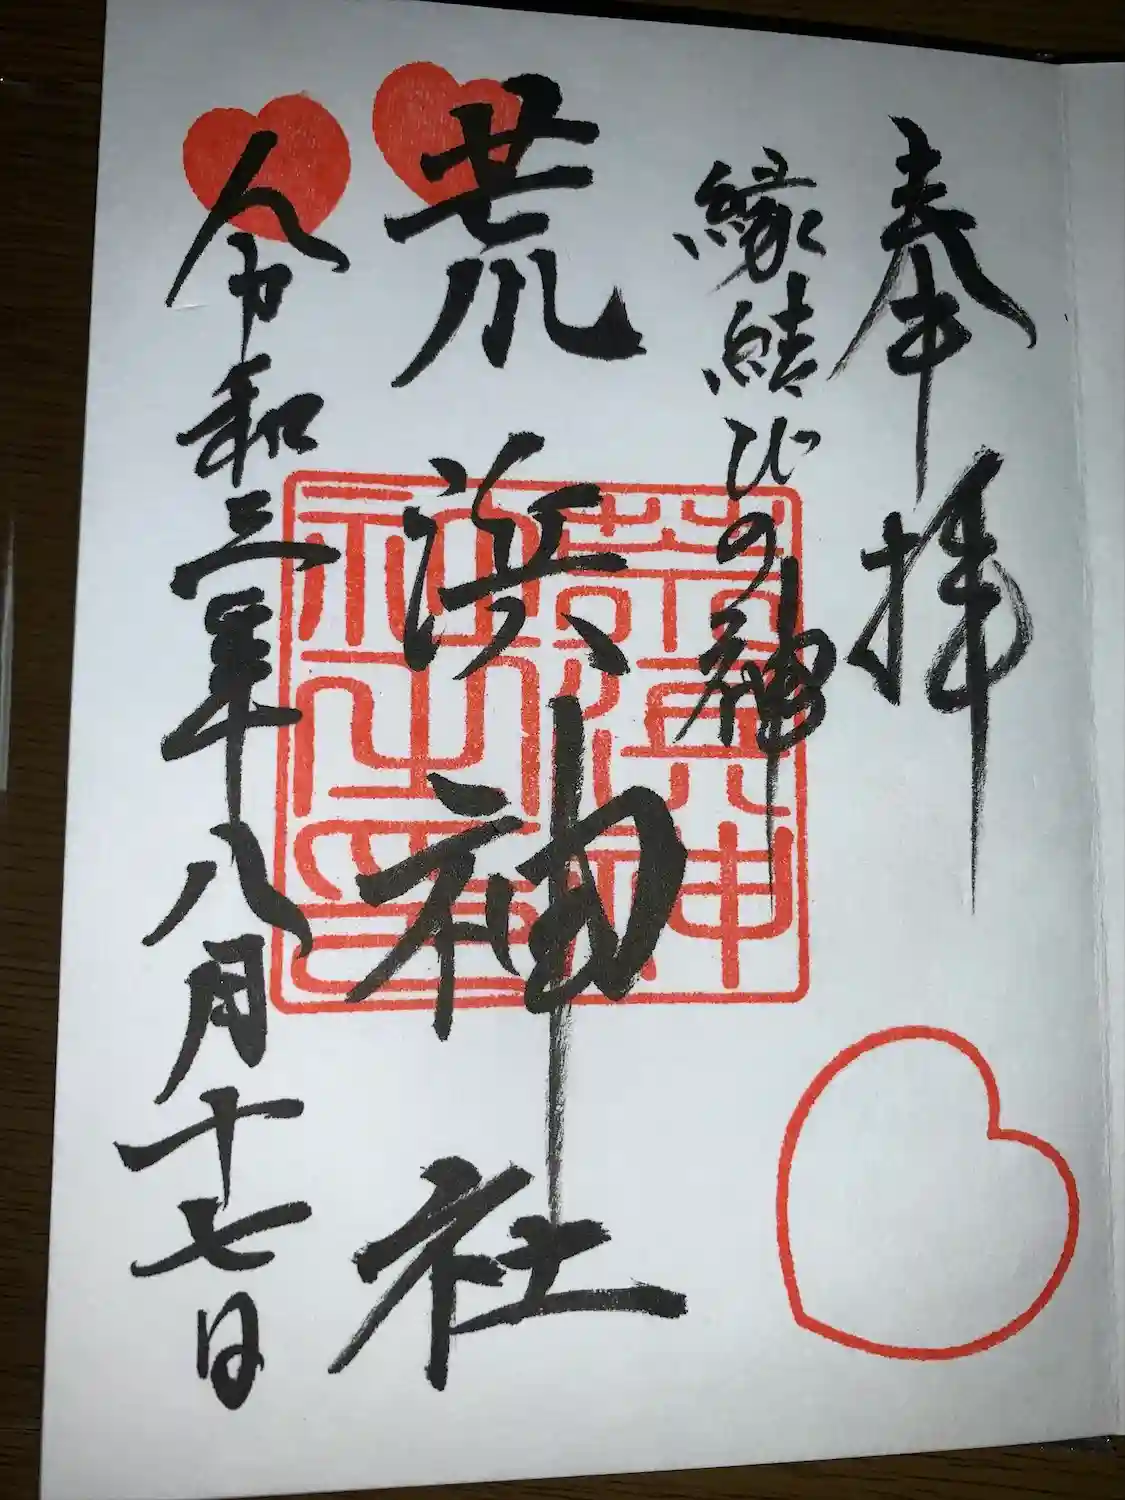 奉拝
縁結びの神
荒浜神社
令和三年八月十七日
荒濱神
社之印